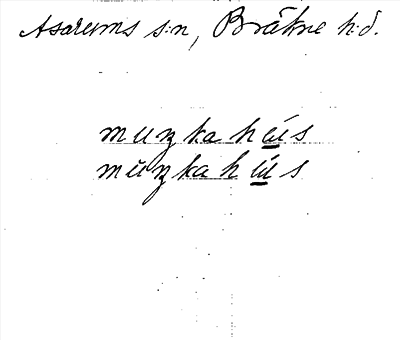 Asarums s:n, Bräkne h:d.
munka hús
mŭnka hús